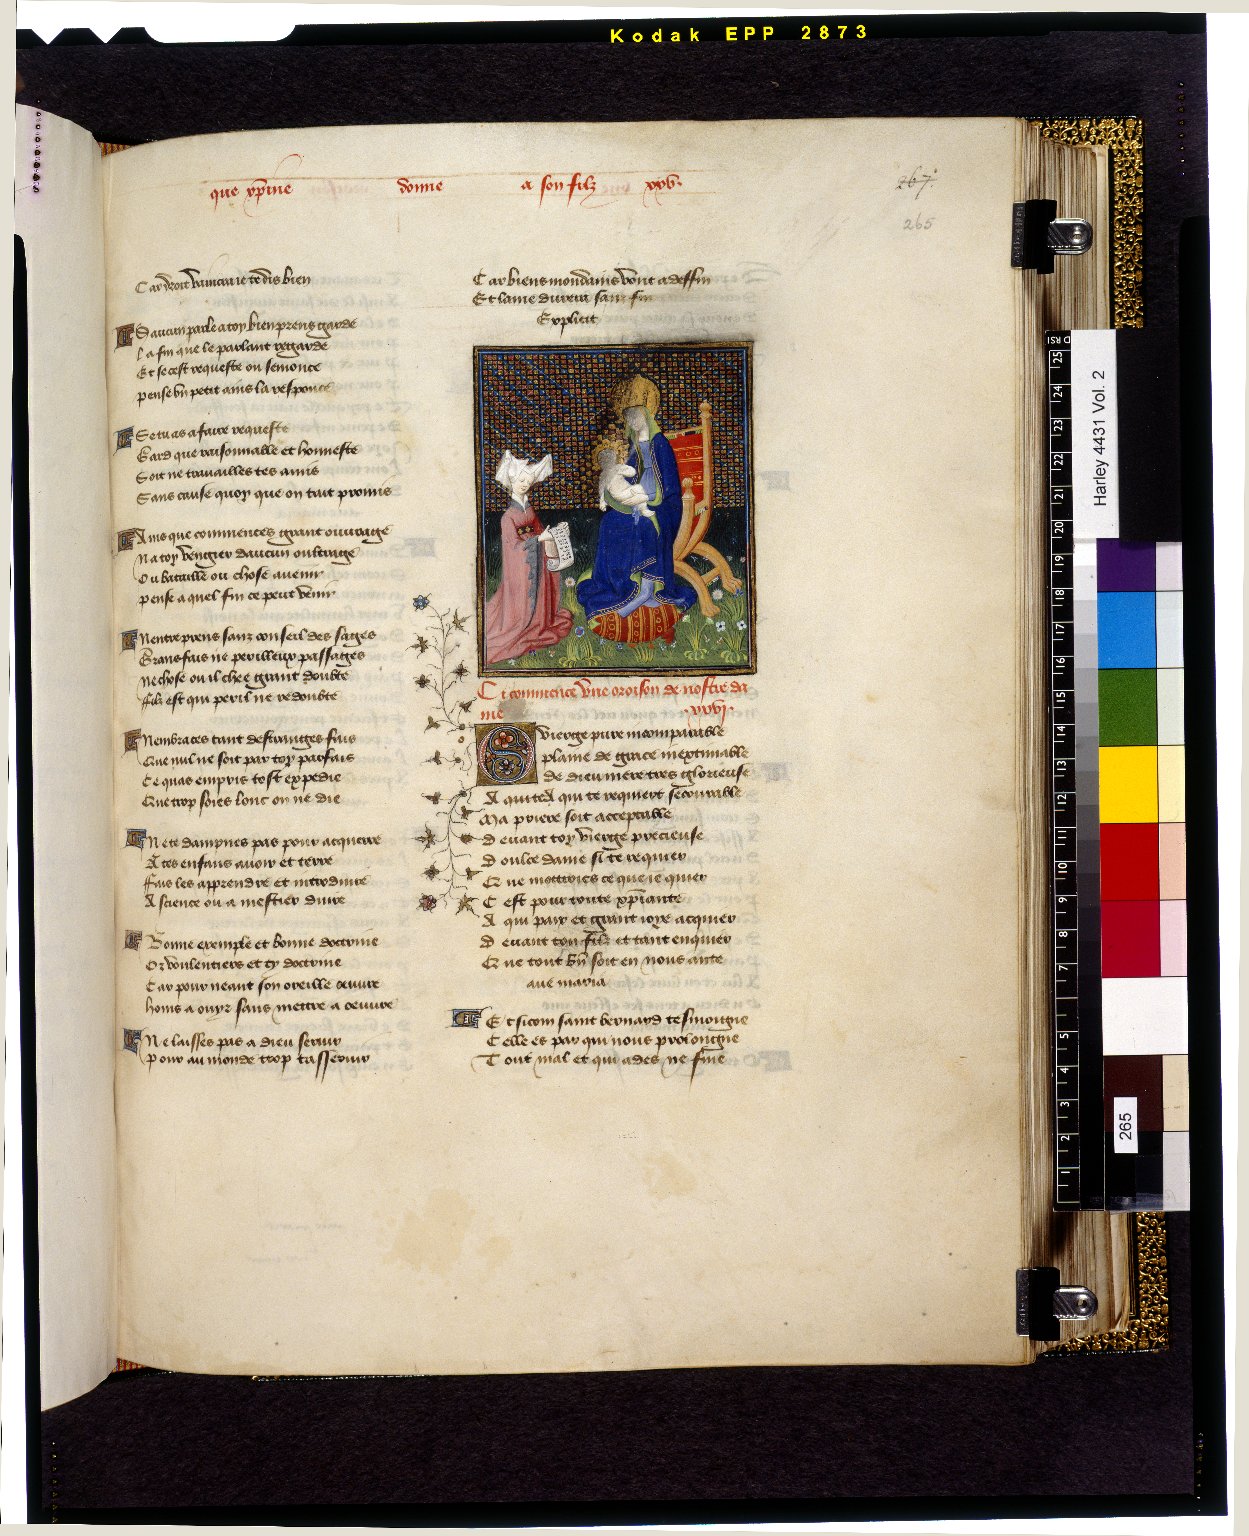 Kodak EPP 2873
que xp̄ine donne a son filz xxv.
267.
265
Car droit vaincu ie te dis bien
Saucun parle a toy bien prens garde
La fin que le parlant regarde
Et se cest requeste ou semonce
Pense vn petit ains la responce
Se tu as a faire requeste
Gard que raisonnable et honneste
Soit ne travailles tes amis
Sans cause quoy que on tait promis
Ains que commences grant ouurage
Na toy vengier daucun oultrage
Ou bataille ou chose auenir
Pense a quel fin ce peut venir
Nentreprens sanz conseil des sages
Grans fais ne perilleux passages
Ne chose ou il chee grant doubte
Filz est qui peril ne redoubte
Nembraces tant destranges fais
Que nul ne soit par toy parfais
Ce quas empris tost expedie
Que trop soies lonc on ne die
Ne te dampnes pas pour acquerre
A tes enfans auoir et terre
Fais les apprendre et introduire
A science ou a mestier duire
Bonne exemple et bonne doctrine
Oz voulentiers et ty doctrine
Car pour neant son oreille euure
Homs a ouyr sans mettre a oeuure
Ne laisses pas a dieu seruir
Pour au monde trop tasseruir
Car biens mondains vont a deffin
Et lame durera sans fin
Explicit
Ci commence vne oroison de nostre da
me .xxvj.
O vierge pure incomparable
plaine de grace inextimable
de dieu mere tres glorieuse
A quitel qui te requiert secourable
Ma priere soit acceptable
Deuant toy vierge precieuse
Doulce dame si te requier
Que mottroies ce que ie quier
Cest pour toute xp̄iante
A qui paix et grant ioye acquier
Deuant ton filz et tant enquier
Que tout bn̄ soit en nous ante
aue maria
Et sicom saint bernard tesmongne
Celle es par qui nous prolongne
Tout mal et qui ades ne fine
Harley 4431 Vol. 2
25
24
23
22
21
20
19
18
17
16
15
14
13
12
11
10
9
8
7
5
4
3
2
1
265